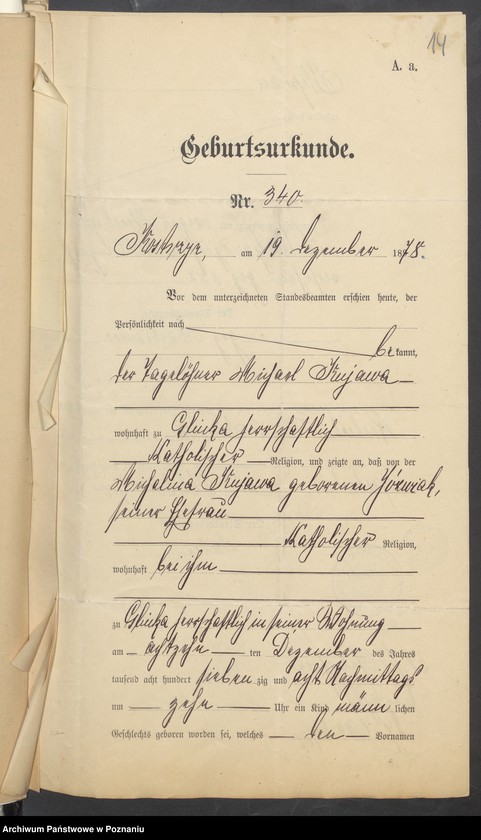 14
A. a.
Geburtsurkunde.
Nr. 340.
am 19. Dezember 1878.
Vor dem unterzeichneten Standesbeamten erschien heute, der
Persönlichkeit nach
bekannt,
der Tagelöhner Michael Kujawa
wohnhaft zu Glinka herrschaftlich
Katholischer Religion, und zeigte an, daß von der
Michalina Kujawa geborenen
seiner Ehefrau
Katholischer Religion,
wohnhaft bei ihm
zu Glinka herrschaftlich in seiner Wohnung
am achtzehn ten Dezember des Jahres
tausend acht hundert sieben zig und acht Nachmittags
um zehn Uhr ein Kind männ lichen
Geschlechts geboren worden sei, welches den Vornamen
Archiwum Państwowe w Poznaniu